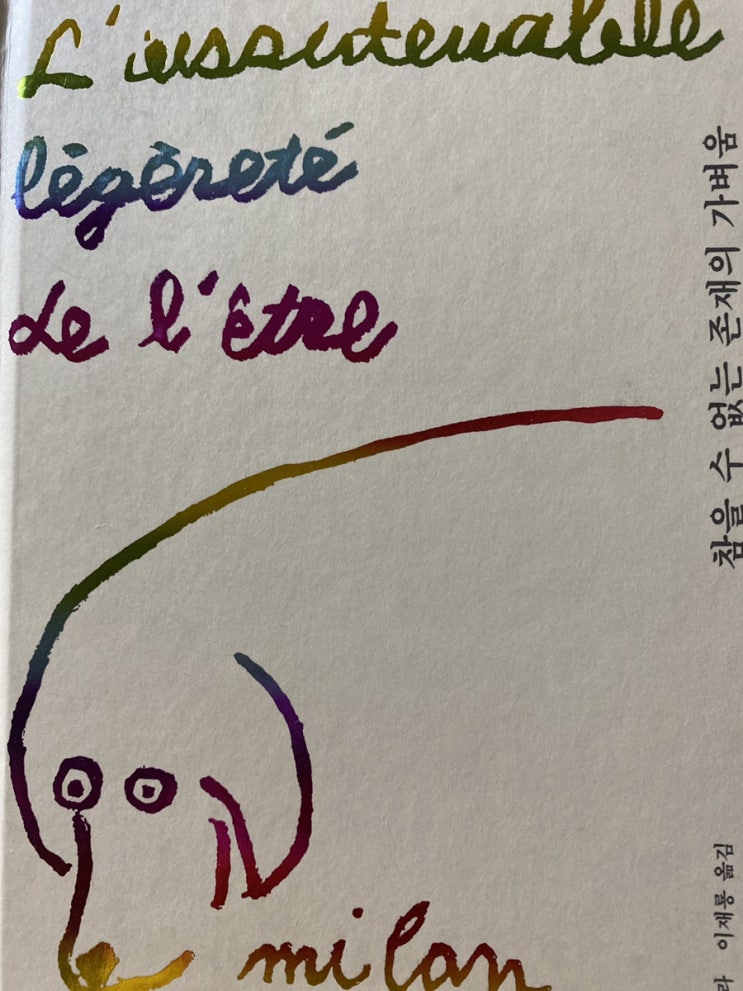 L'insoutenable
légèreté
de l'être
milan
참을 수 없는 존재의 가벼움
라 이재룡 옮김